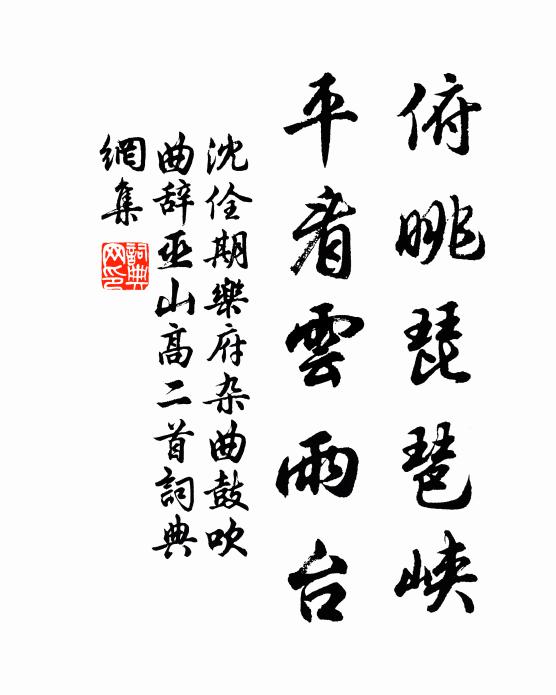 俯眺琵琶峽
平看雲雨台
沈佺期樂府杂曲鼓吹
曲辞巫山高二首詞典
網集
詞典
网印